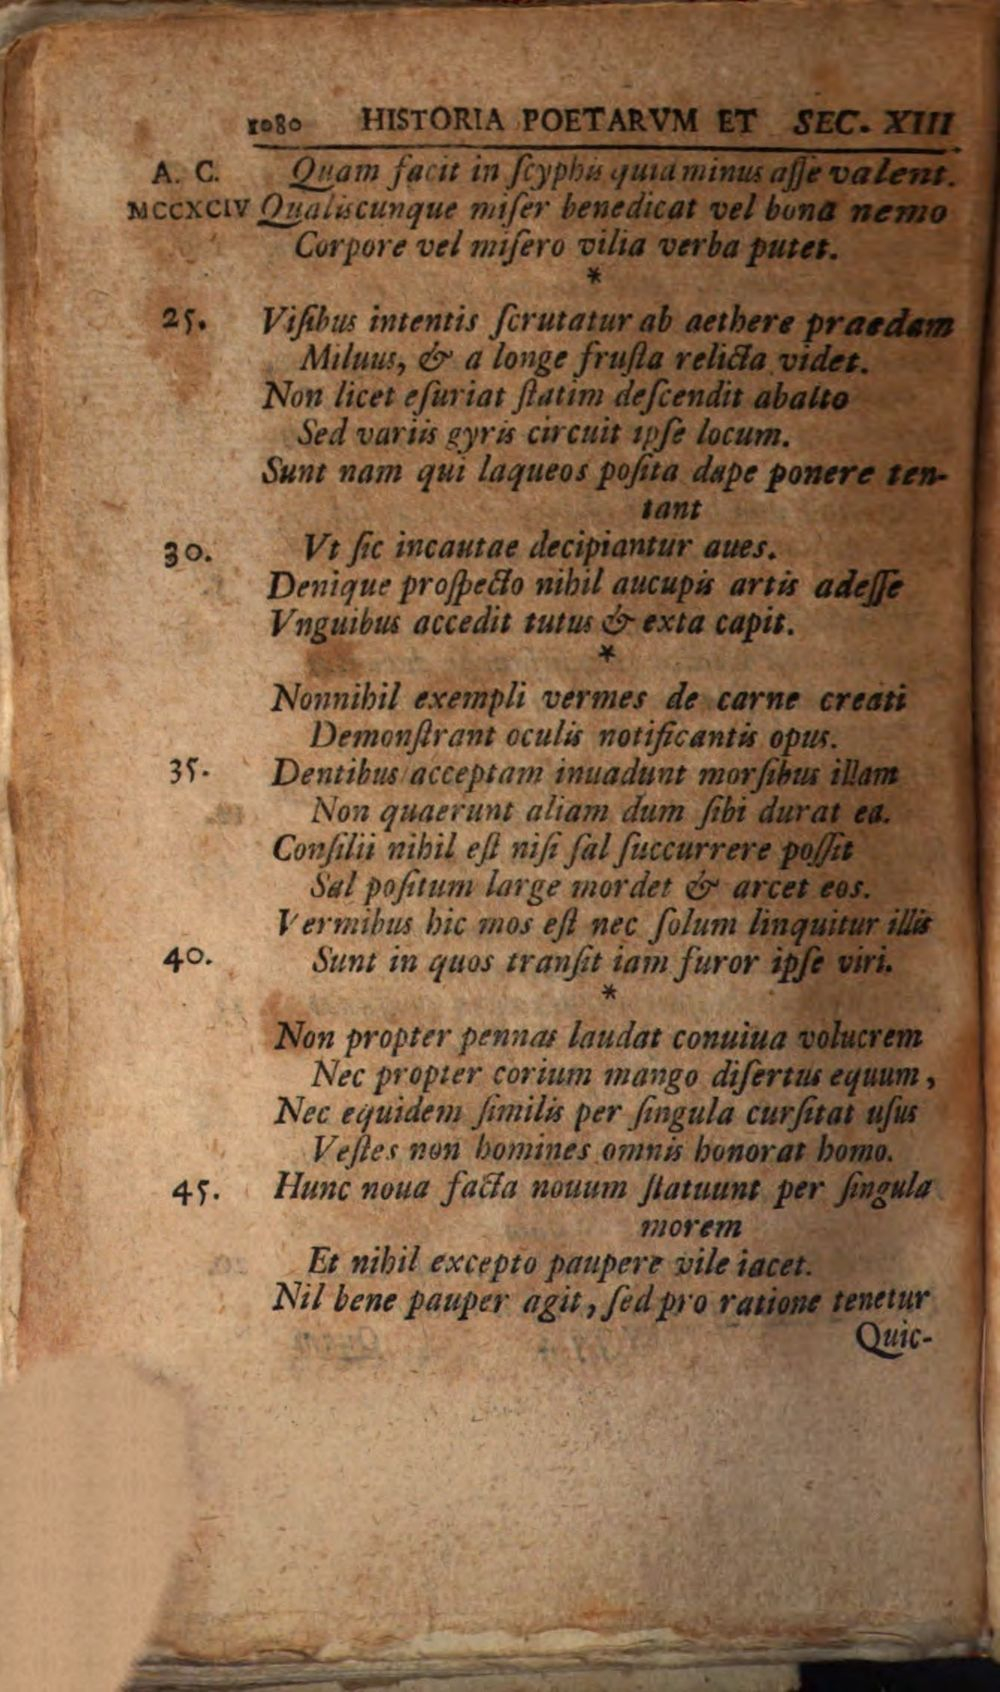 1080 HISTORIA POETARVM ET SEC. XIII
A. C. Quam facit in ſcyphis quid minus aſſe valent.
MCCXCIV Qualiscunque miſer benedicat vel bona nemo
Corpore vel miſero vilia verba putet.
*
25. Viſibus intentis ſcrutatur ab aethere praedam
Miluus, & a longe fruſta relicta videt.
Non licet eſuriat ſtatim deſcendit ab alto
Sed variis gyris circuit ipſe locum.
Sunt nam qui laqueos poſita dape ponere ten-
tant
30. Vt ſic incautae decipiantur aues.
Denique proſpecto nihil aucupis artis adeſſe
Vnguibus accedit tutus & exta capit.
*
Nonnihil exempli vermes de carne creati
Demonſtrant oculis notificantis opus.
35. Dentibus acceptam inuadunt morſibus illam
Non quaerunt aliam dum ſibi durat ea.
Conſilii nihil eſt niſi ſal ſuccurrere poſſit
Sal poſitum large mordet & arcet eos.
Vermibus hic mos eſt nec ſolum linquitur illis
40. Sunt in quos tranſit iam furor ipſe viri.
*
Non propter pennas laudat conuiua volucrem
Nec propter corium mango diſertus equum,
Nec equidem ſimilis per ſingula curſitat uſus
Veſtes non homines omnis honorat homo.
45. Hunc noua facta nouum ſtatuunt per ſingula
morem
Et nihil excepto paupere vile iacet.
Nil bene pauper agit, ſed pro ratione tenetur
Quic-